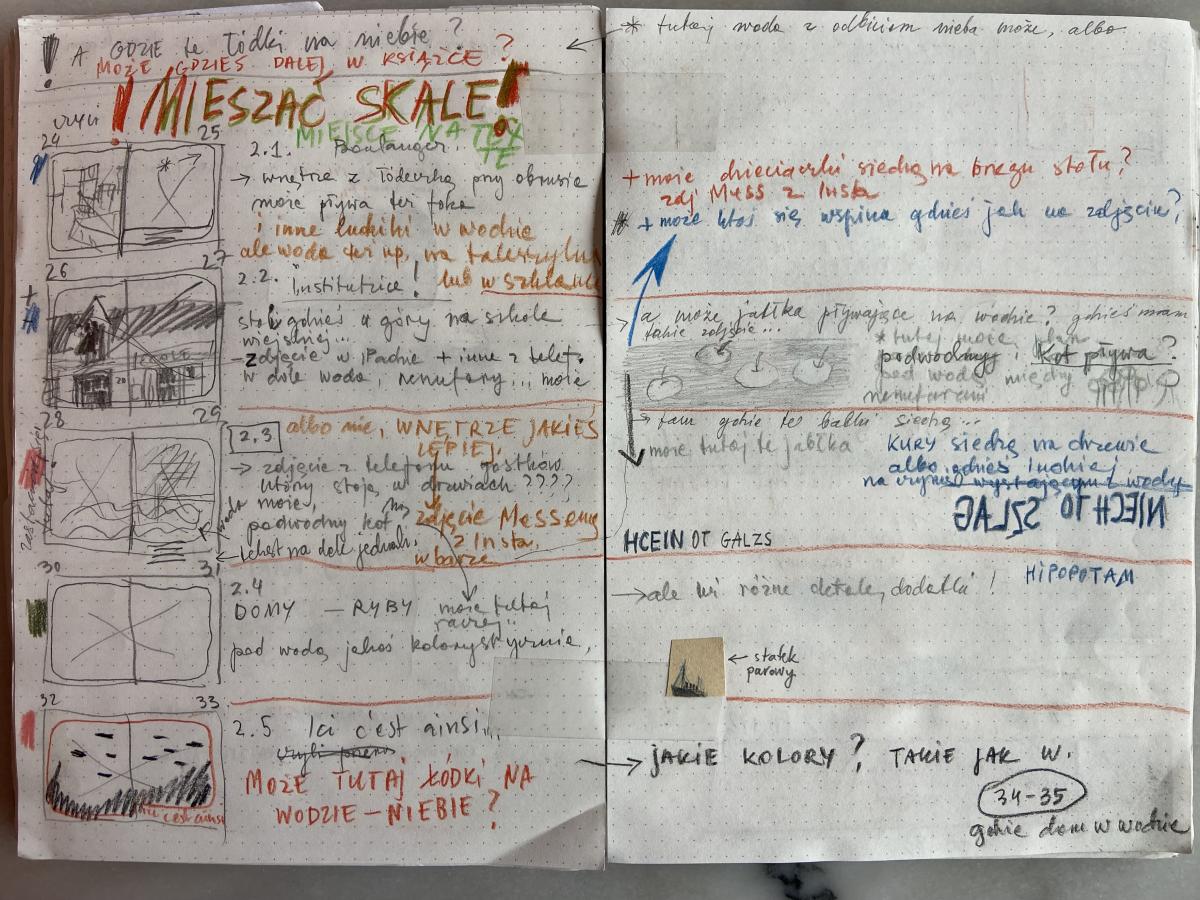 ! A GDZIE te łódki na niebie?
MOŻE GDZIEŚ DALEJ W KSIĄŻCE?
! MIESZAĆ SKALE!
czyli
MIEJSCE NA TEX
TE
24 25
2.1. Boulanger.
→ wnętrze z łódeczką przy obrusie
może pływa też foka
i inne ludziki w wodzie
ale woda też np. na talerzyku
lub w szklance
26 27
2.2. Institutrice!
stoi gdzieś u góry na szkole
wiejskiej...
- zdjęcie w iPadzie + inne z telef.
w dole woda, nenufary... może
ECOLE
28 29
albo nie, WNĘTRZE JAKIEŚ
LEPIEJ.
2.3
→ zdjęcie z telefonu gostków
którzy stoją w drzwiach ????
może,
podwodny kot
zdjęcie Messeng
z Insta.
w barze
woda
tekst na dole jednak.
30 31
2.4
DOMY — RYBY może tutaj
raczej..
pod wodą jakoś kolorystycznie,
32 33
2.5 Ici c'est ainsi...
czyli
MOŻE TUTAJ ŁÓDKI NA
WODZIE – NIEBIE?
ici c'est ainsi
* tutaj woda z odbiciem nieba może, albo
+ może dzieciaczki siedzą na brzegu stołu?
zdj Mess z Insta
* + może ktoś się wspina gdzieś jak na zdjęciu?
→ a może jabłka pływające na wodzie? gdzieś mam
takie zdjęcie...
* tutaj może plan
podwodny i kot pływa?
pod wodą między
nenufarami
→ tam gdzie te babki siedzą...
może tutaj te jabłka
KURY siedzą na drzewie
albo gdzieś indziej
na czymś wystającym z wody
NIECH TO SZLAG
HCEIN OT GALZS
HIPOPOTAM
→ ale też różne detale, dodatki!
← statek
parowy
→ JAKIE KOLORY? TAKIE JAK W.
34-35
gdzie dom w wodzie